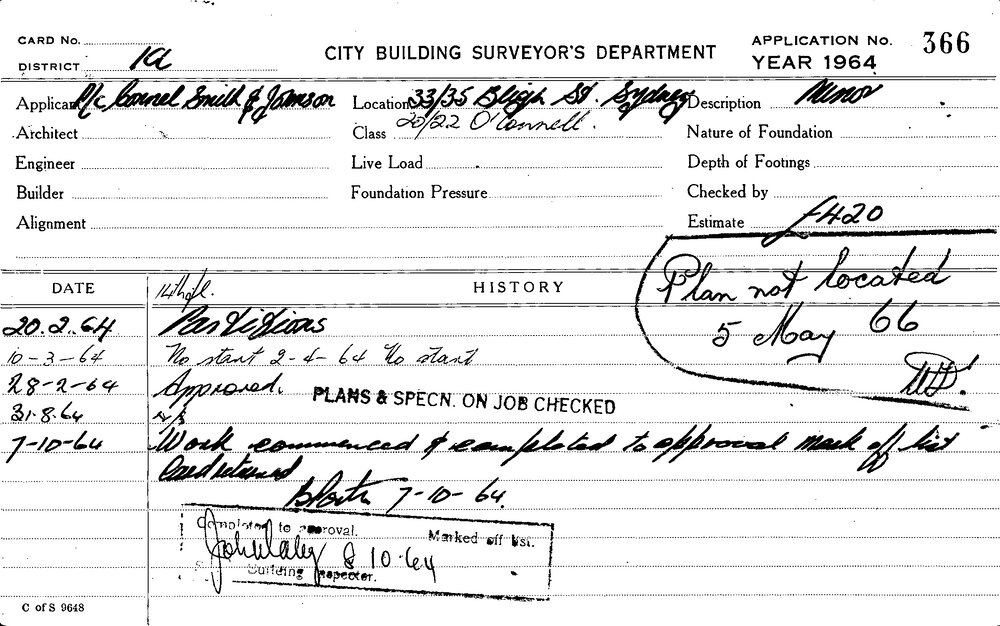 CARD No.
DISTRICT
CITY BUILDING SURVEYOR'S DEPARTMENT
APPLICATION No. 366
YEAR 1964
Applicant P/c Connel Smith & Johnson
Location 33/35 Bligh St. Sydney
20/22 O'Connell.
Description Minor
Architect
Class
Nature of Foundation
Engineer
Live Load
Depth of Footings
Builder
Foundation Pressure
Checked by
Alignment
Estimate £420
Plan not located
5 May 66
DATE
HISTORY
14th fl.
20.2.64 Partitions
10-3-64 No start 2-4-64 No start
28-2-64 Approved.
PLANS & SPECN. ON JOB CHECKED
31.8.64 N/S
7-10-64 Work commenced & completed to approval mark off list
Card returned
7-10-64.
Completed to approval. Marked off list.
8 10.64
Building Inspector.
C of S 9648